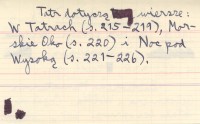 Tatr dotyczą wiersze:
W Tatrach (s. 215-219), Mor-
skie Oko (s. 220) i Noc pod
Wysoką (s. 221-226).